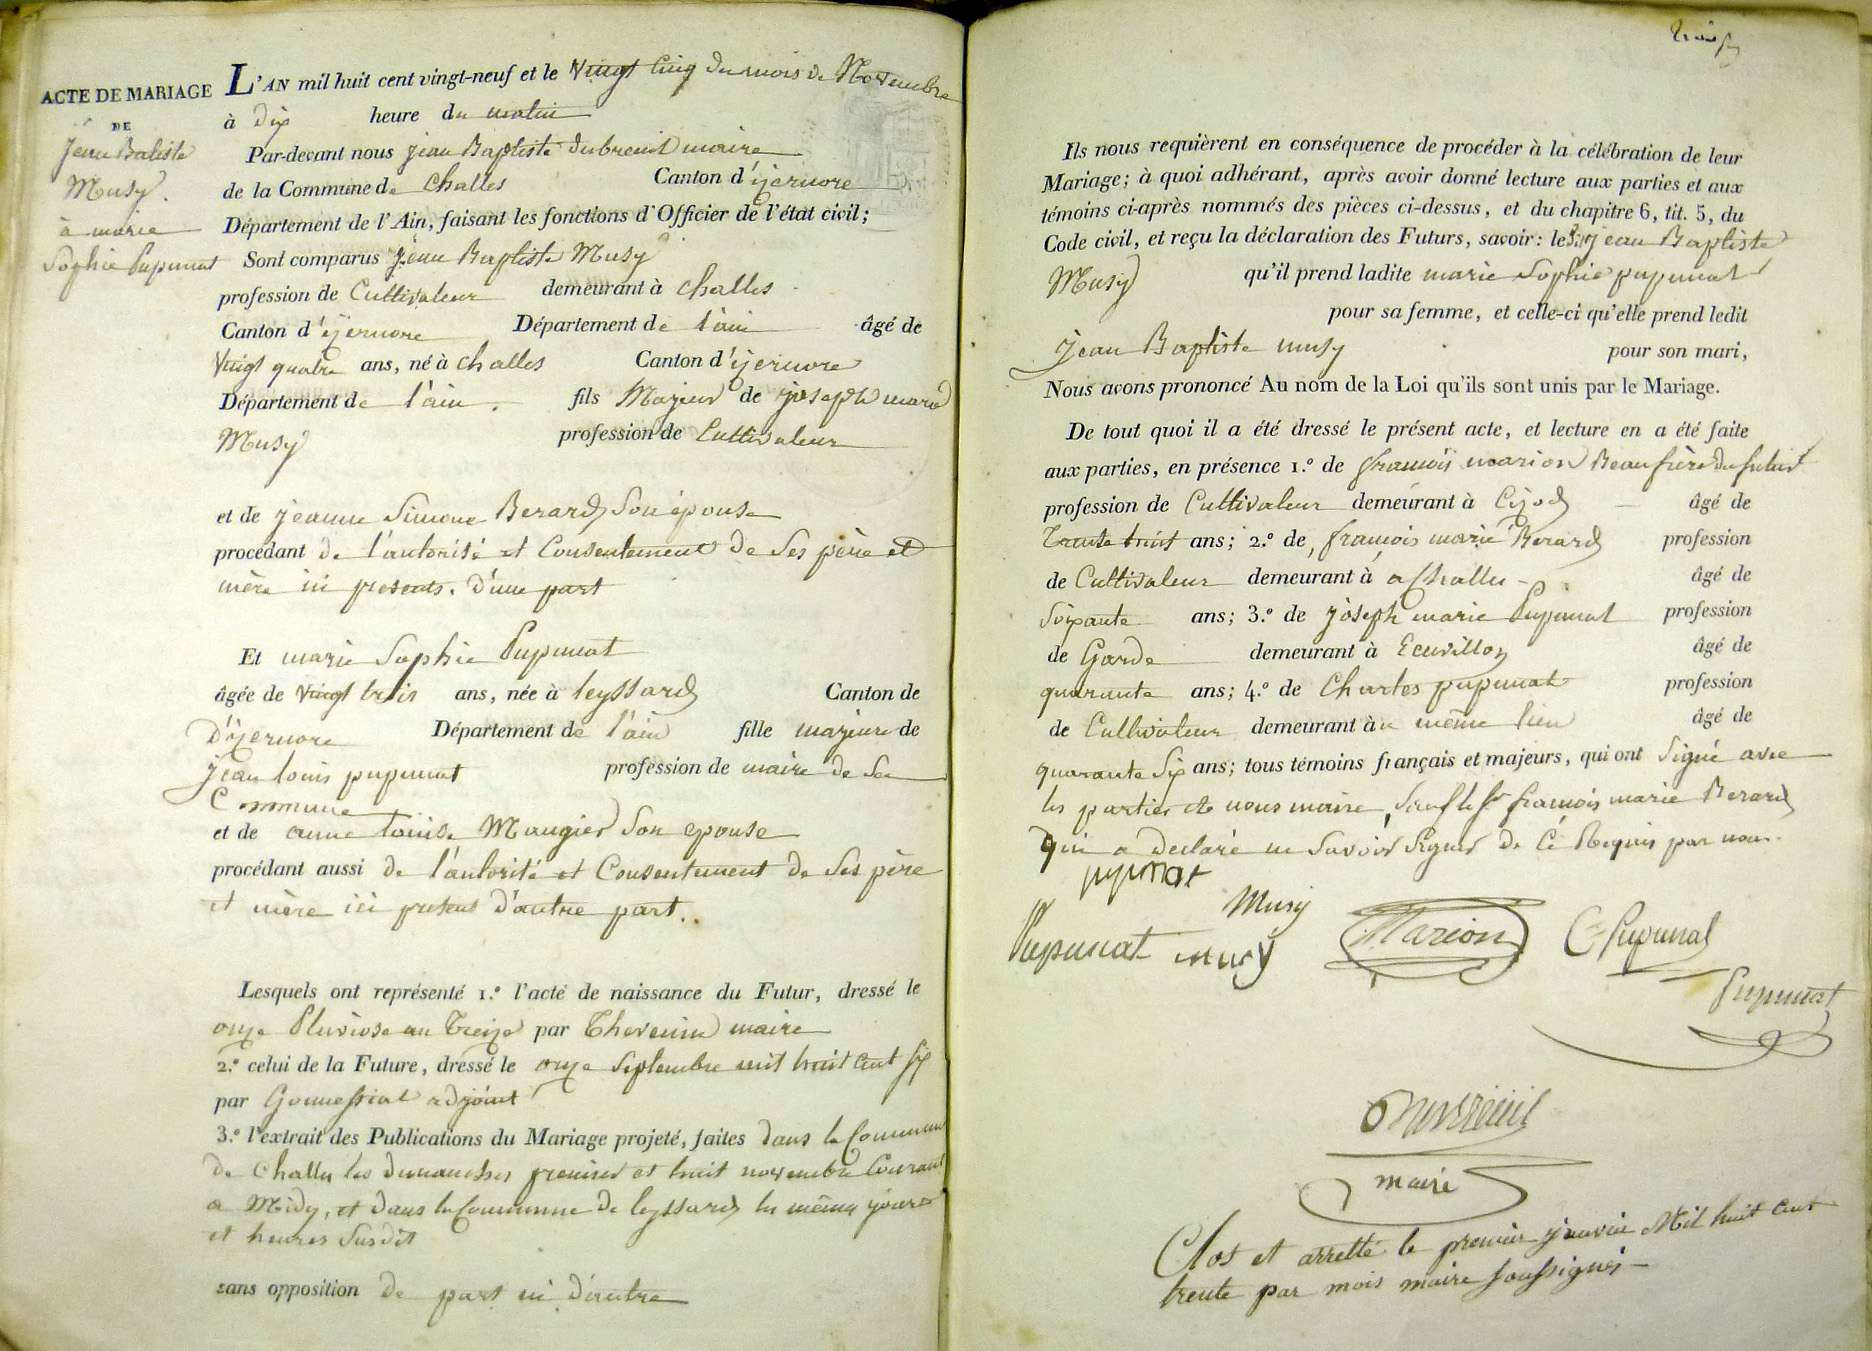 ACTE DE MARIAGE
DE
Jean Batiste
Musy.
à marie
Sophie Pupunat
L'AN mil huit cent vingt-neuf et le vingt cinq du mois de Novembre
à dix heure du matin
Par-devant nous jean Baptiste dubreuil maire
de la Commune de Challes Canton d'izernore
Département de l'Ain, faisant les fonctions d'Officier de l'état civil;
Sont comparus jean Baptiste Musy
profession de Cultivateur demeurant à Challes
Canton d'izernore Département de l'ain âgé de
vingt quatre ans, né à Challes Canton d'izernore
Département de l'ain. fils Majeur de joseph marie
Musy profession de Cultivateur
et de jeanne Simone Berard Son épouse
procédant de l'autorité et Consentement de Ses père et
mère ici presents. d'une part
Et marie Sophie Pupunat
âgée de vingt trois ans, née à leyssard Canton de
D'izernore Département de l'ain fille majeure de
jean louis pupunat profession de maire de Sa
Commune
et de anne louise Maugier Son epouse
procédant aussi de l'autorité et Consentement de Ses père
et mère ici presens d'autre part.
Lesquels ont représenté 1.º l'acte de naissance du Futur, dressé le
onze Pluviose an Treize par Thevenin maire
2.º celui de la Future, dressé le onze Septembre mil huit cent six
par Gonnessiat adjoint
3.º l'extrait des Publications du Mariage projeté, faites dans la Commune
de Challes les dimanches premier et huit novembre Courant
a Midy, et dans la Commune de leyssard les mêmes jours
et heures Susdit
sans opposition de part ni d'autre
Ils nous requièrent en conséquence de procéder à la célébration de leur
Mariage; à quoi adhérant, après avoir donné lecture aux parties et aux
témoins ci-après nommés des pièces ci-dessus, et du chapitre 6, tit. 5, du
Code civil, et reçu la déclaration des Futurs, savoir: le jean Baptiste
Musy qu'il prend ladite marie Sophie pupunat
pour sa femme, et celle-ci qu'elle prend ledit
jean Baptiste musy pour son mari,
Nous avons prononcé Au nom de la Loi qu'ils sont unis par le Mariage.
De tout quoi il a été dressé le présent acte, et lecture en a été faite
aux parties, en présence 1.º de françois marion Beau frère du futur
profession de Cultivateur demeurant à Cizod âgé de
Trente huit ans; 2.º de françois marie Berard profession
de Cultivateur demeurant à a Challes âgé de
Soixante ans; 3.º de joseph marie Pupunat profession
de Garde demeurant à Ecuvillon âgé de
quarante ans; 4.º de Charles pupunat profession
de Cultivateur demeurant àu même lieu âgé de
quarante Six ans; tous témoins français et majeurs, qui ont Signé avec
les parties et nous maire, Sauf le Sr françois marie Berard
qui a declaré ne Savoir Signer de Ce Requis par nous.
pupunat
Musy
Pupunat musy Marion C Pupunat
Pupunat
Dubreuil
maire
Clos et arretté le premier janvier Mil huit cent
trente par mois maire soussignés